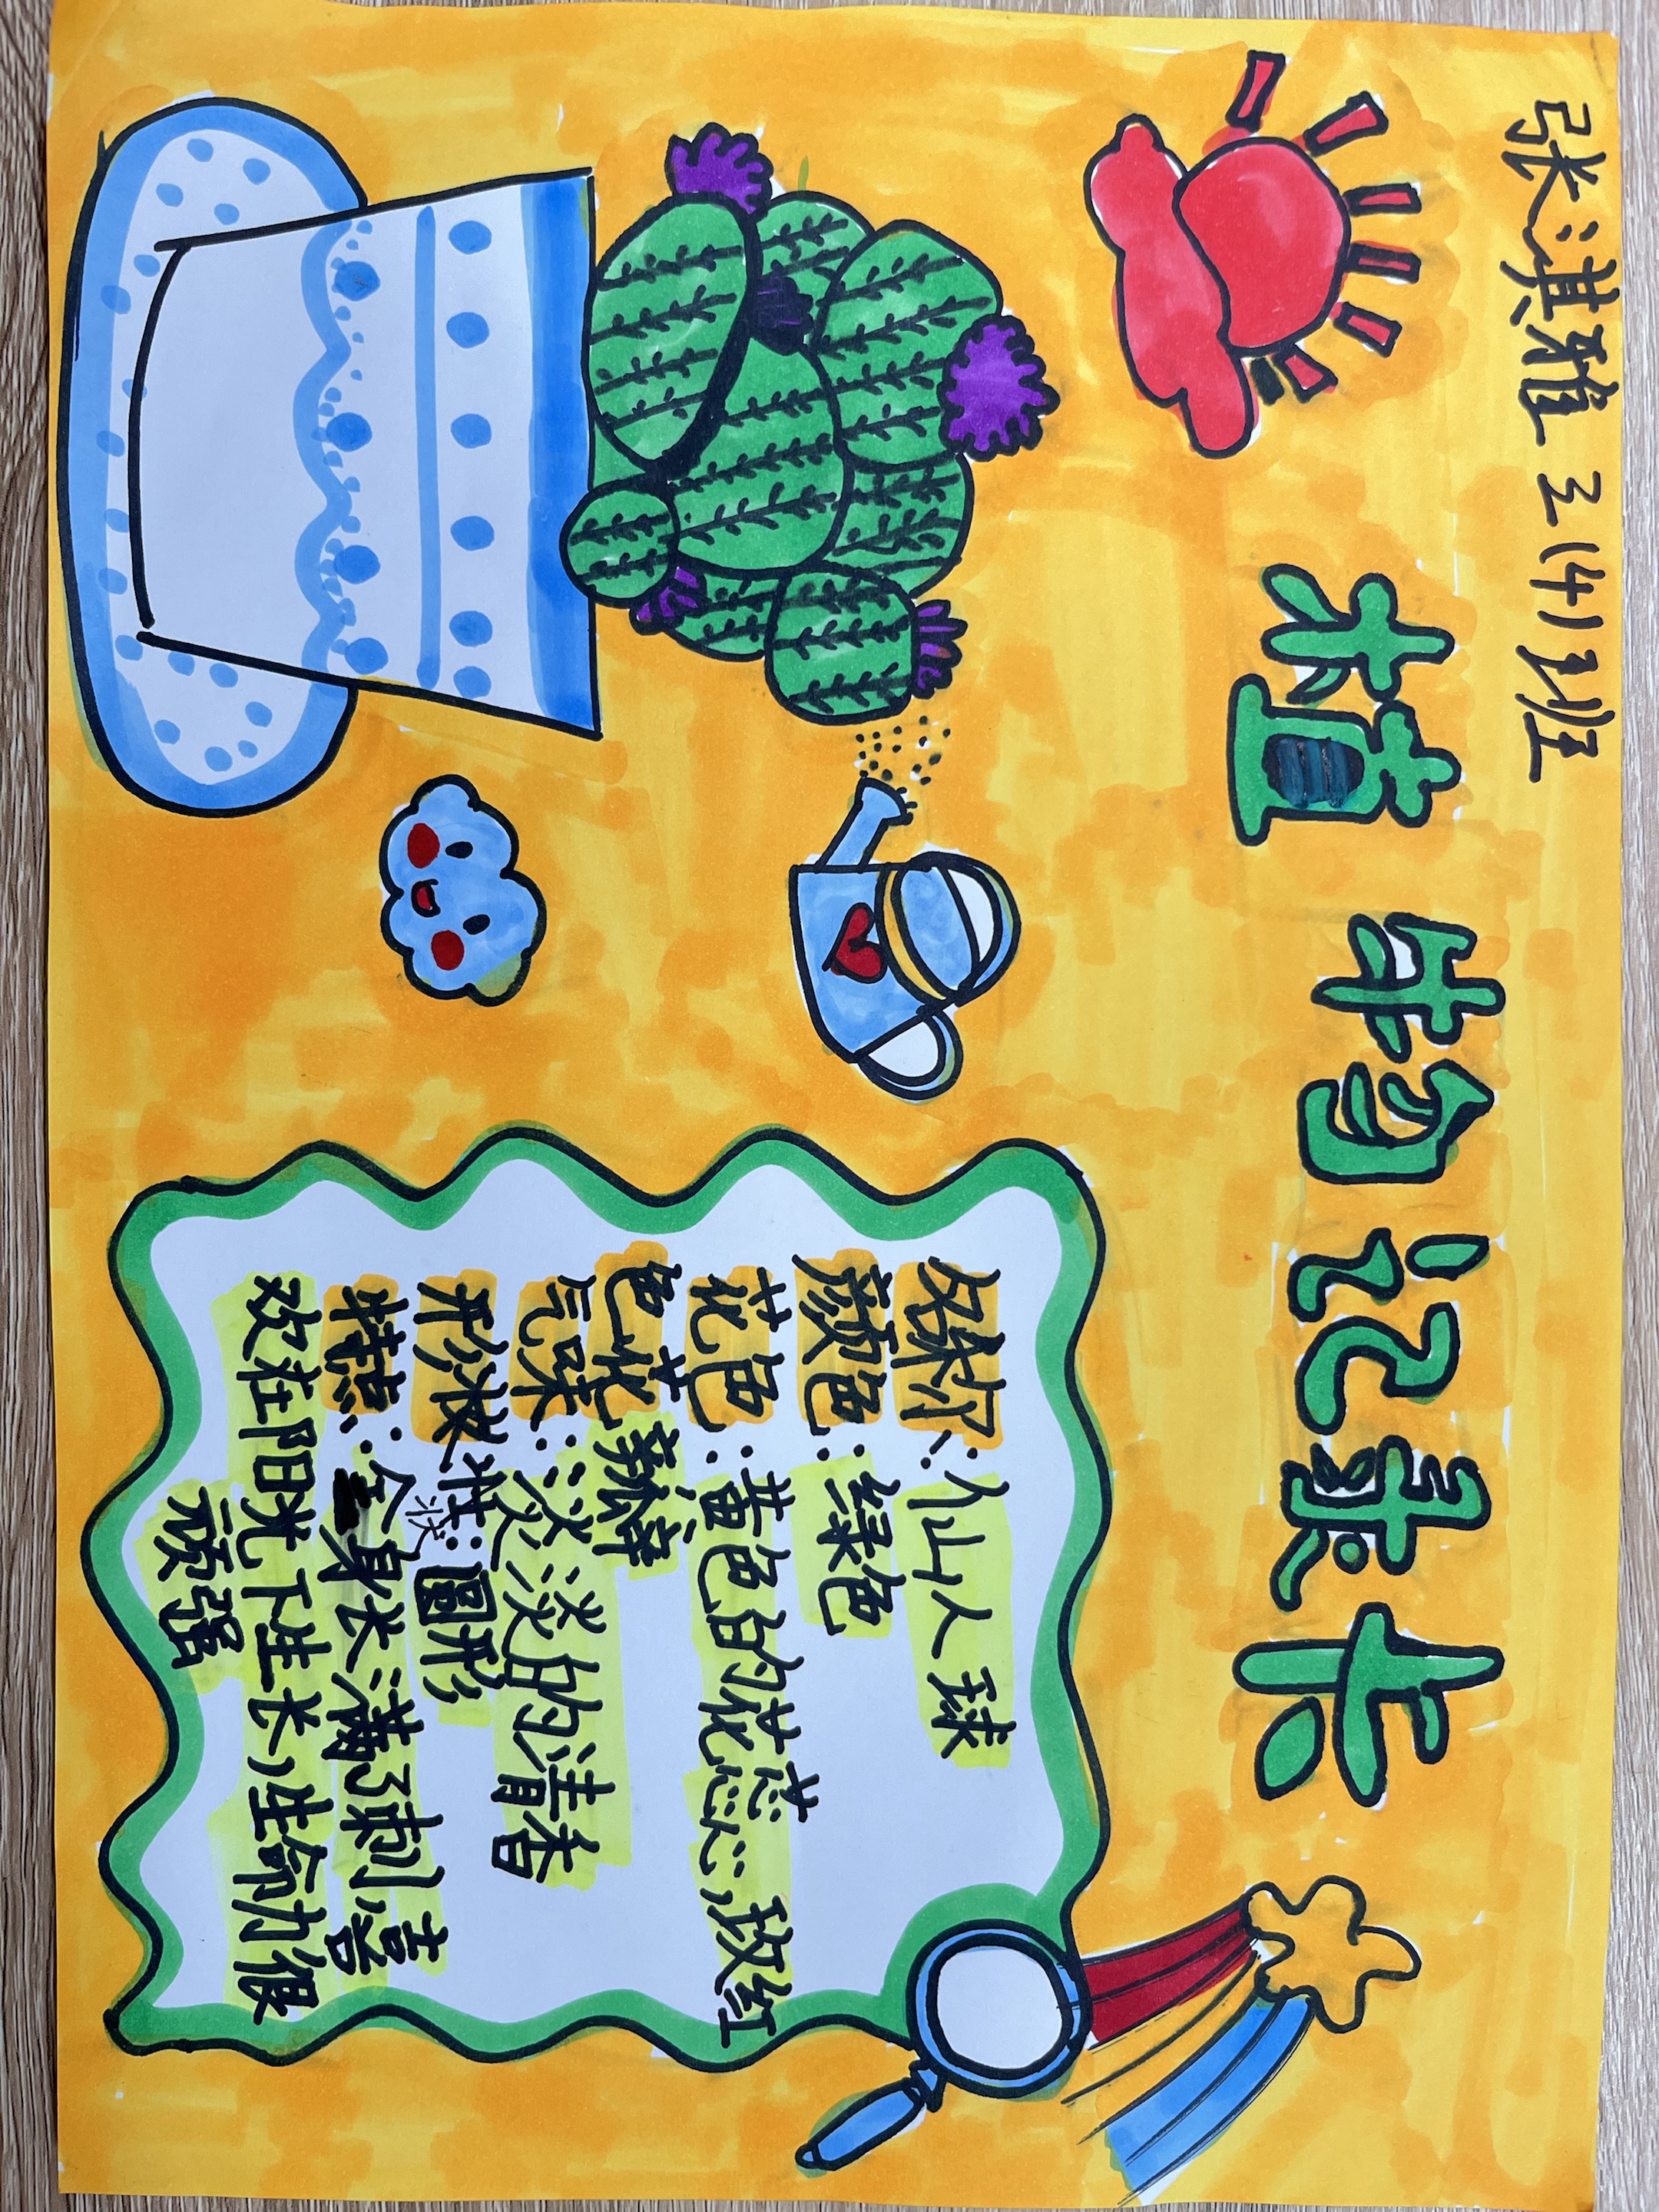 张淇雅 三(4)班
植物记录卡
名称:仙人球
颜色:绿色
花色:黄色的花蕊,玫红
色花瓣
气味:淡淡的清香
形状:圆形
特点:全身长满了刺,喜
欢在阳光下生长,生命力很
顽强